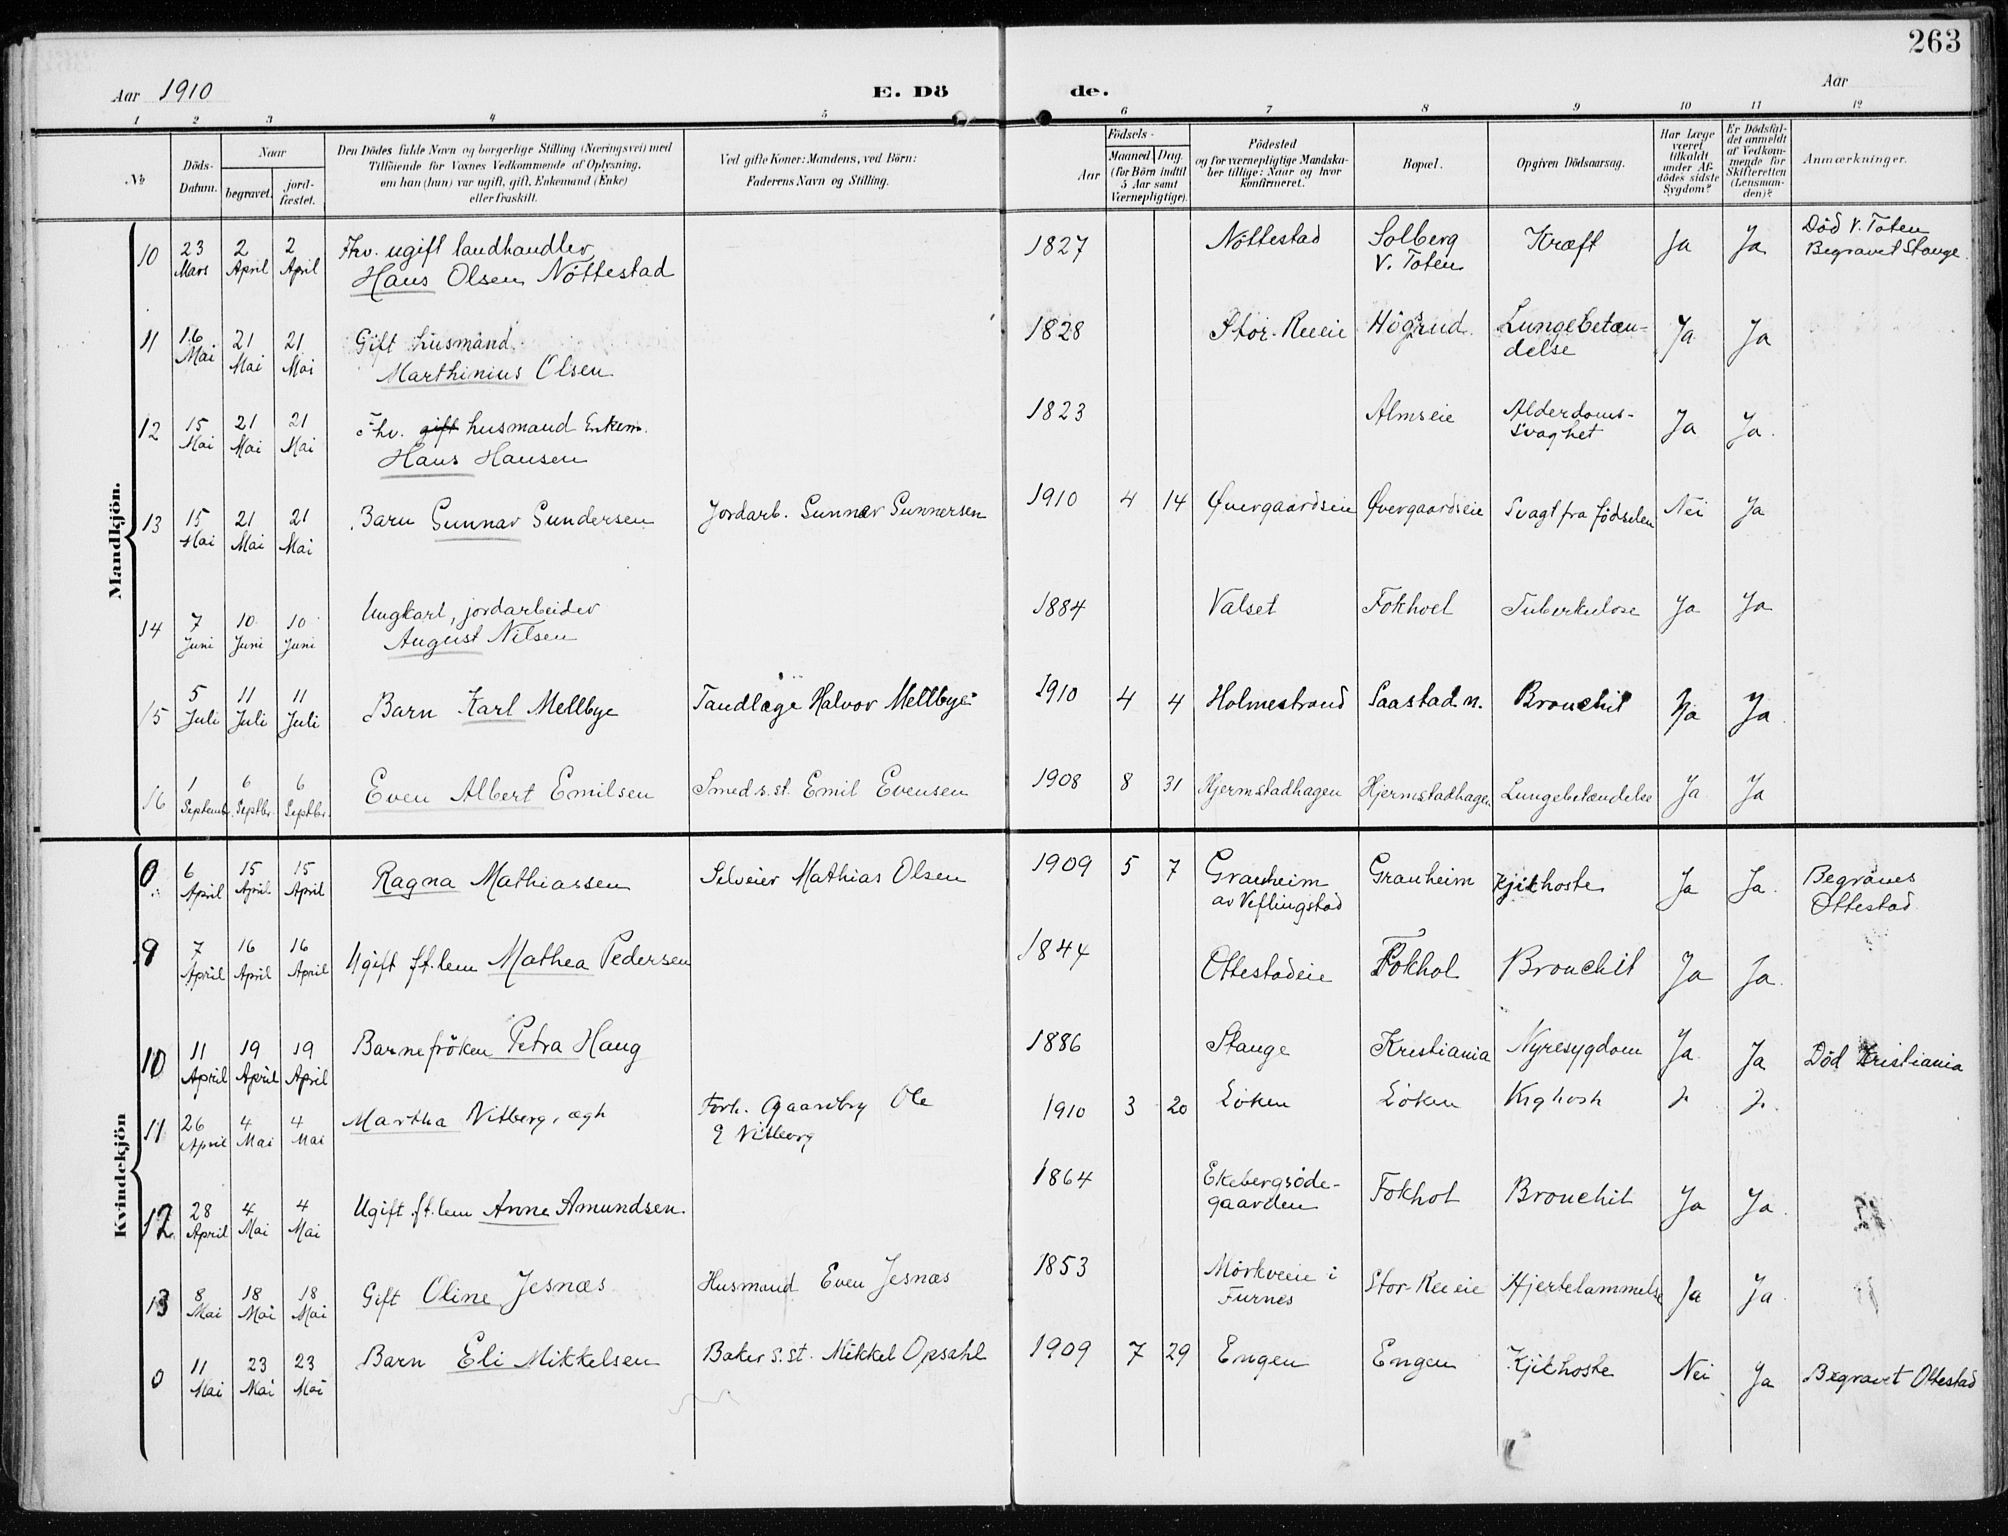 263
Aar 1910 E. Dö de. Aar
1 2 3 4 5 6 7 8 9 10 11 12
№
Döds-Datum.
Naar
begravet.
jord-fæstet.
Den Dödes fulde Navn og borgerlige Stilling (Næringsvei) med
Tilföiende for Voxnes Vedkommende af Oplysning,
om han (hun) var ugift, gift, Enkemand (Enke)
eller fraskilt.
Ved gifte Koner: Mandens, ved Börn:
Faderens Navn og Stilling.
Födsels-
Aar
Maaned Dag
(for Börn indtil
5 Aar samt
Værnepligtige).
Födested
og for værnepligtige Mandska-
ber tillige: Naar og hvor
konfirmeret.
Bopæl.
Opgiven Dödsaarsag.
Har Læge
været
tilkaldt
under Af-
dödes sidste
Sygdom?
Er Dödsfal-
det anmeldt
af Vedkom-
mende for
Skifteretten
(Lensman-
den)?
Anmærkninger.
Mandkjön.
10 23 Mars 2 April 2 April Fhv. ugift landhandler
Hans Olsen Nöttestad 1827 Nöttestad Solberg V. Toten Kræft Ja Ja Död V. Toten
Begravet Stange.
11 16 Mai 21 Mai 21 Mai Gift husmand
Marthinius Olsen 1828 Stor-Reeie Högsrud Lungebetæn-
delse Ja Ja
12 15 Mai 21 Mai 21 Mai Fhv. gift husmand Enkem.
Hans Hansen 1823 Almseie Alderdoms-
svaghet Ja Ja.
13 15 Mai 21 Mai 21 Mai Barn Gunnar Gundersen Jordarb. Gunnar Gunnersen 1910 4 14 Øvergaardseie Øvergaardseie Svagt fra födselen Nei Ja
14 7 Juni 10 Juni 10 Juni Ungkarl, jordarbeider
August Nilsen 1884 Valset Fokhoel Tuberkulose Ja Ja
15 5 Juli 11 Juli 11 Juli Barn Karl Mellbye Tandlæge Halvor Mellbye 1910 4 4 Holmestrand Saastad n. Bronchit Ja Ja
16 1 Septemb. 6 Septbr. 6 Septbr. Even Albert Emilsen Smed s.st. Emil Evensen 1908 8 31 Hjermstadhagen Hjermstadhagen Lungebetændelse Ja Ja
Kvindekjön
0 6 April 15 April 15 April Ragna Mathiassen Selveier Mathias Olsen 1909 5 7 Granheim
av Veflingstad Granheim Kjikhoste Ja Ja. Begraves
Ottestad
9 7 April 16 April 16 April Ugift ft.lem Mathea Pedersen 1844 Ottestadeie Fokhol Bronchit Ja Ja.
10 11 April 19 April 19 April Barnefröken Petra Haug 1886 Stange Kristiania Nyresygdom Ja Ja Död Kristiania
11 26 April 4 Mai 4 Mai Martha Vitberg, ægh Forh. Gaardbr Ole
E Vitberg 1910 3 20 Löken Löken Kighost J. J.
12 28 April 4 Mai 4 Mai Ugift ft.lem Anne Amundsen 1864 Ekebergsöde-
gaarden Fokhol Bronchit Ja Ja
13 8 Mai 18 Mai 18 Mai Gift Oline Jesnæs Husmand Even Jesnæs 1853 Mörkveeie i
Furnes Stor-Reeeie Hjertelammelse Ja Ja
0 11 Mai 23 Mai 23 Mai Barn Eli Mikkelsen Baker s.st. Mikkel Opsahl 1909 7 29 Engen Engen Kjikhoste Nei Ja Begravet Ottestad